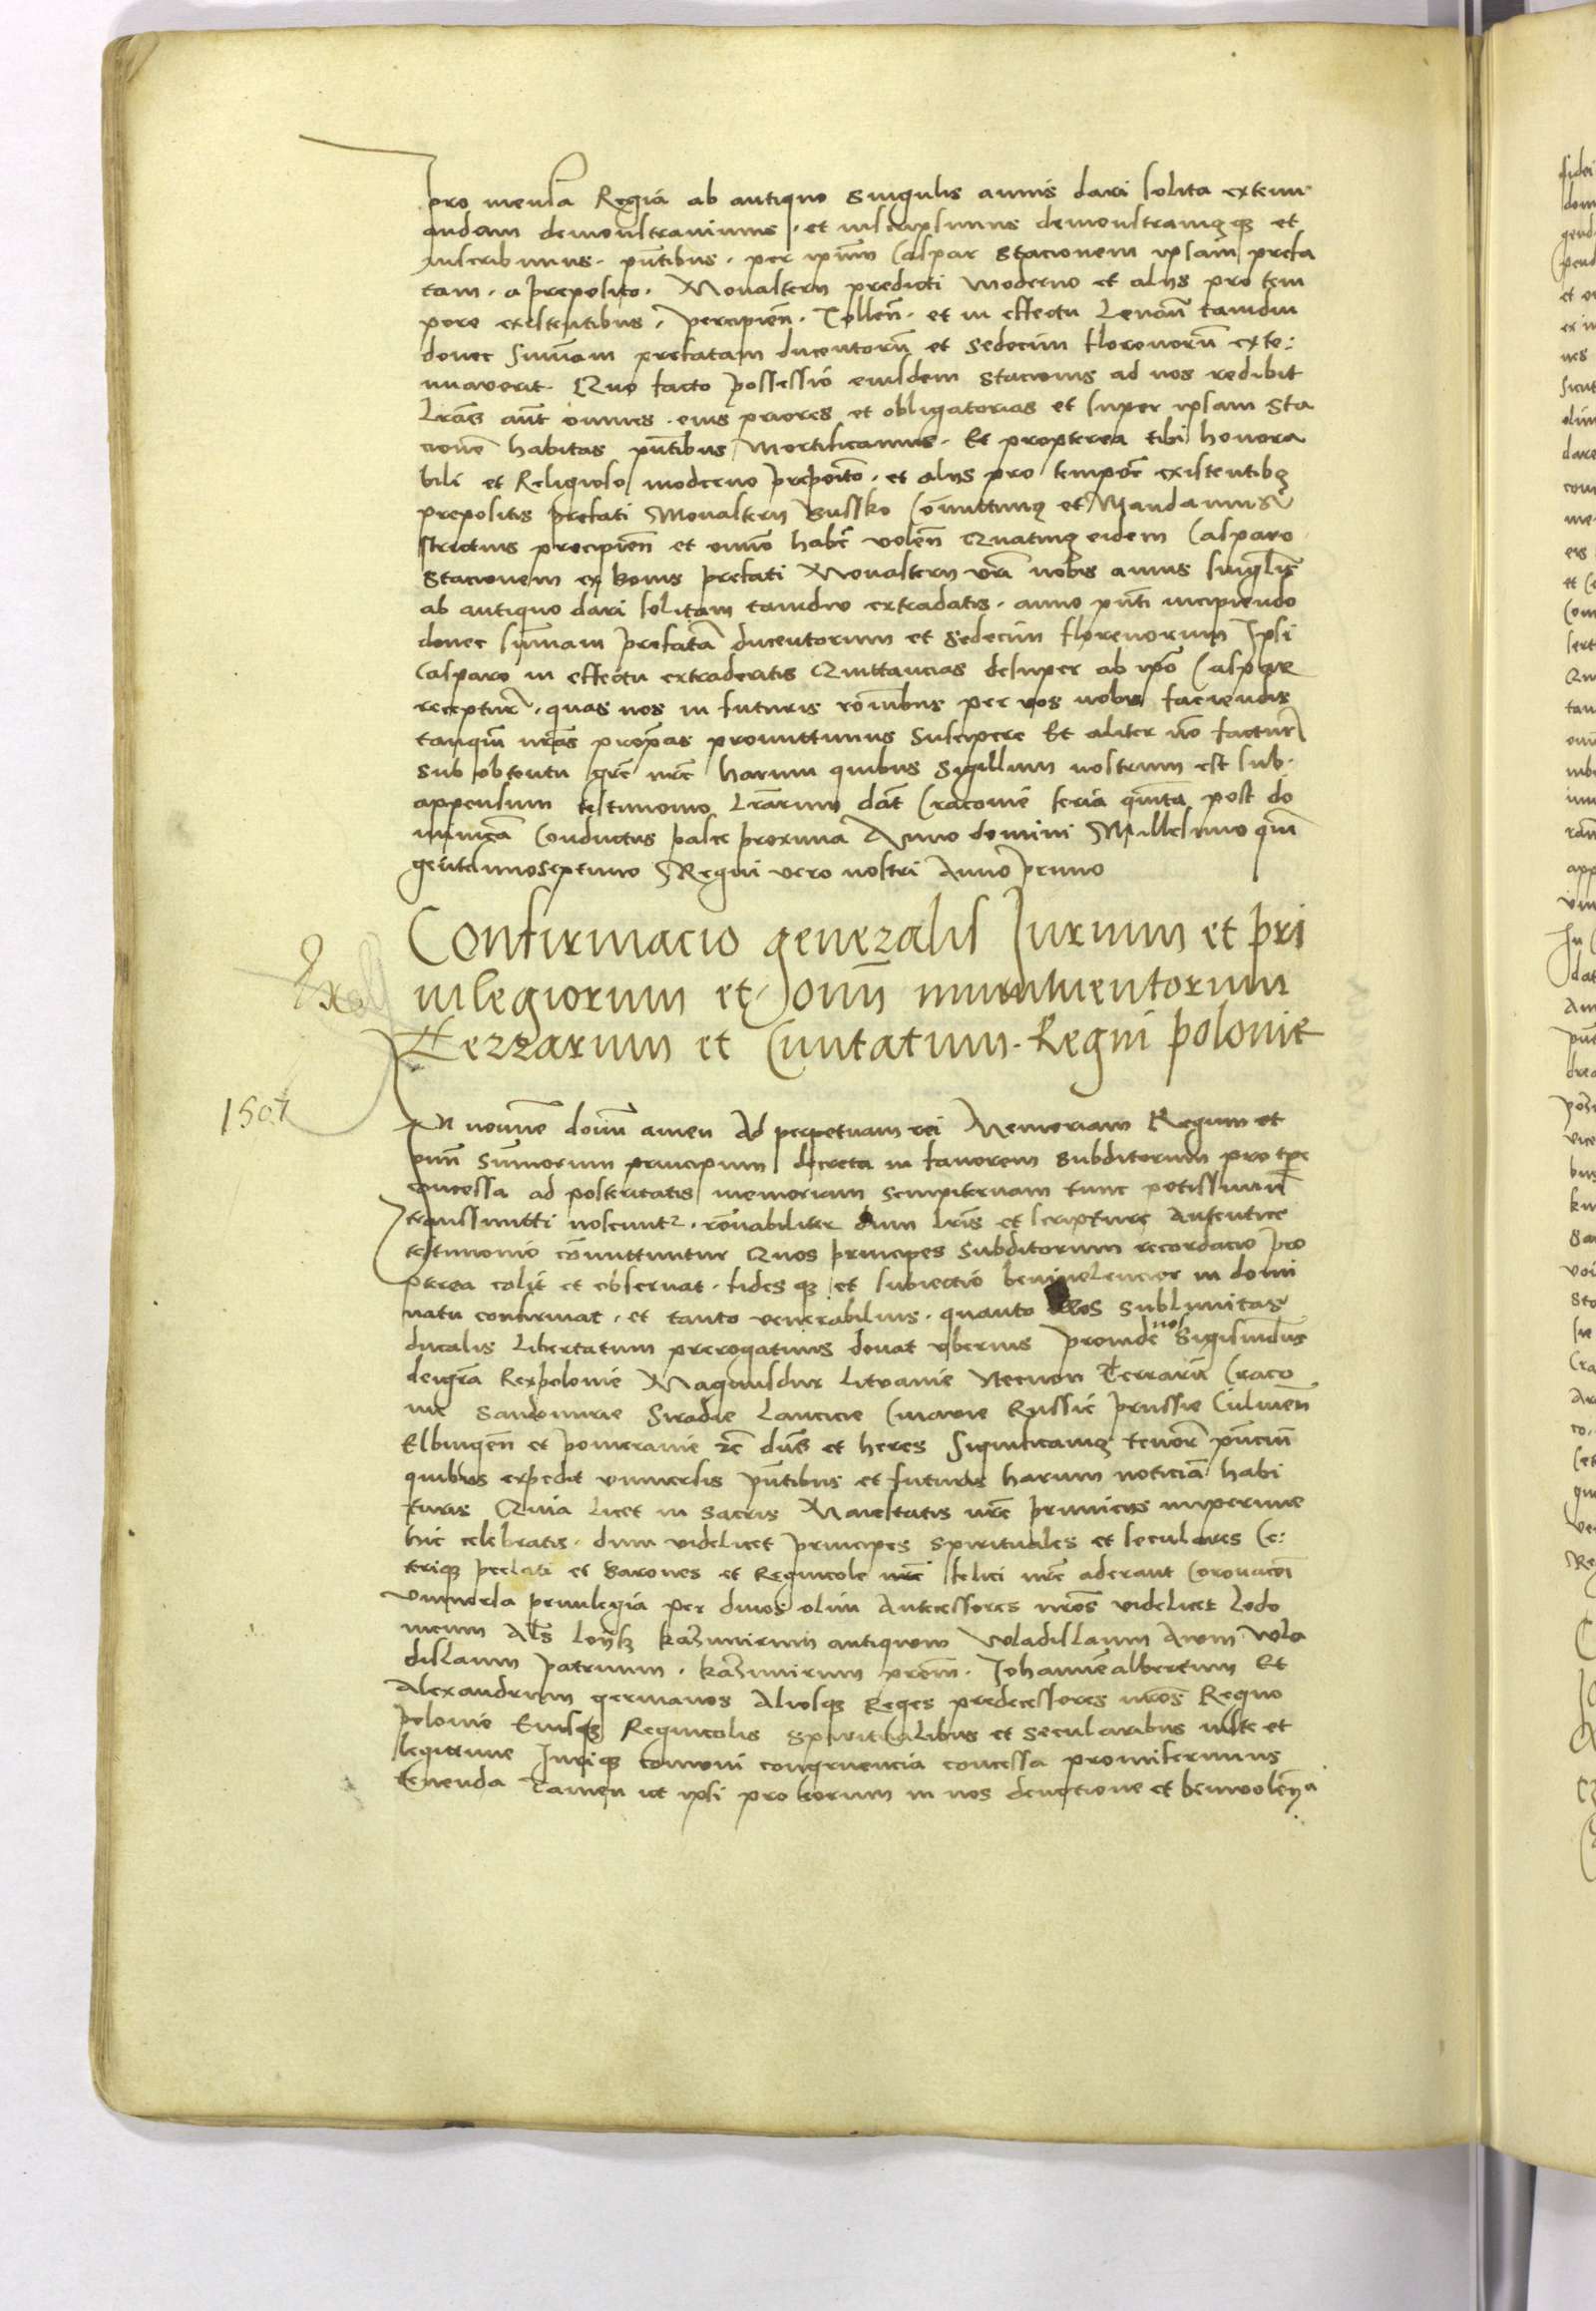 pro mensa Regia ab antiquo singulis annis dari solita extenu
andam demonstravimus . et inscripsimus demonstramusque et
inscribimus . pntibus . per ipsum Caspar Stacionem ipsam prefa
tam . a preposito . Monasterij predicti moderno et alijs pro tem
pore existentibus . percipien . Tollen . et in effectu Levan tamdiu
donec summam prefatam ducentoru et sedecim florenoru exte:
nuaverit . Quo facto possessio eiusdem stacionis ad nos redibit
Lras aut omnes . eius priores et obligatorias et super ipsam sta
cione habitas pntibus Mortificamus . Et propterea tibi honora
bili et Religioso moderno preposito . et alijs pro tempore existentibus
prepositis prefati Monasterij Bussko Comittimus et Mandamus
strictius precipien et omnino habere volen Quatinus eidem Casparo
Stacionem ex bonis prefati Monasterij vri nobis annis singulis
ab antiquo dari solitam tamdiu extradatis . anno pnti incipiendo
donec summam prefatam ducentorum et sedecim florenorum Ipsi
Casparo in effectu extraderitis Quittancias desuper ab ipso Caspar
receptur . quas nos in futuris racionibus per vos nobis faciendis
tanquam nras proprias promittimus suscipere Et aliter non factur
sub obtentu gre nre harum quibus Sigillum nostrum est sub .
appensum testimonio Lrarum dat Cracovie feria quinta post do
minicam Conductus pasce proxima Anno domini Millesimo quin
gentesimoseptimo Regni vero nostri Anno primo
Confirmacio generalis Jurium et pri
vilegiorum et omn munimentorum
Terrarum et Civitatum . Regni polonie
1507
In nomine domini amen Ad perpetuam rei Memoriam Regum et
omn Summorum principum decreta in favorem subditorum pro tpe
concessa ad posteritatis memoriam sempiternam tunc potissimum
transmitti noscuntur . racionabiliter dum lris et scripture Autentice
testimonio comittuntur Quos principes subditorum recordacio pro
pterea colit et observat . fides que et subiectio benivolencior in domi
natu confirmat . et tanto venerabilius . quanto illos sublimitas
ducalis Libertatum prerogativis donat uberius Proinde nos Sigismdus
dei gra Rex polonie Magnusdux Litvanie Necnon Terraru Craco
vie Sandomirie Siradie Lancicie Cuiavie Russie prussie Culmen
Elbingen et pomeranie etc dns et heres Significamus tenore pncium
quibus expedit universis pntibus et futuris harum noticia habi
turis Quia licet in sacris Maiestatis nre primiciis nuperrime
hic celebratis . dum videlicet principes spirituales et seculares Ce:
terique prelati et Barones et Regnicole nre felici nre aderant Coronacioni
Universa privilegia per divos olim Antecessores nros videlicet Lodo
vicum Als Loysz Kazimirum antiquum Wladislaum Avum Wla
dislaum patruum . Kazimirum prem . Johannemalbertum Et
Alexandrum germanos Aliosque Reges predecessores nros Regno
polonie Eiusque Regnicolis Spiritualibus et secularibus iuste et
legittime Jurique comuni congruencia concessa promiserimus
tenenda Tamen ut ipsi pro eorum in nos devotione et benivolencia